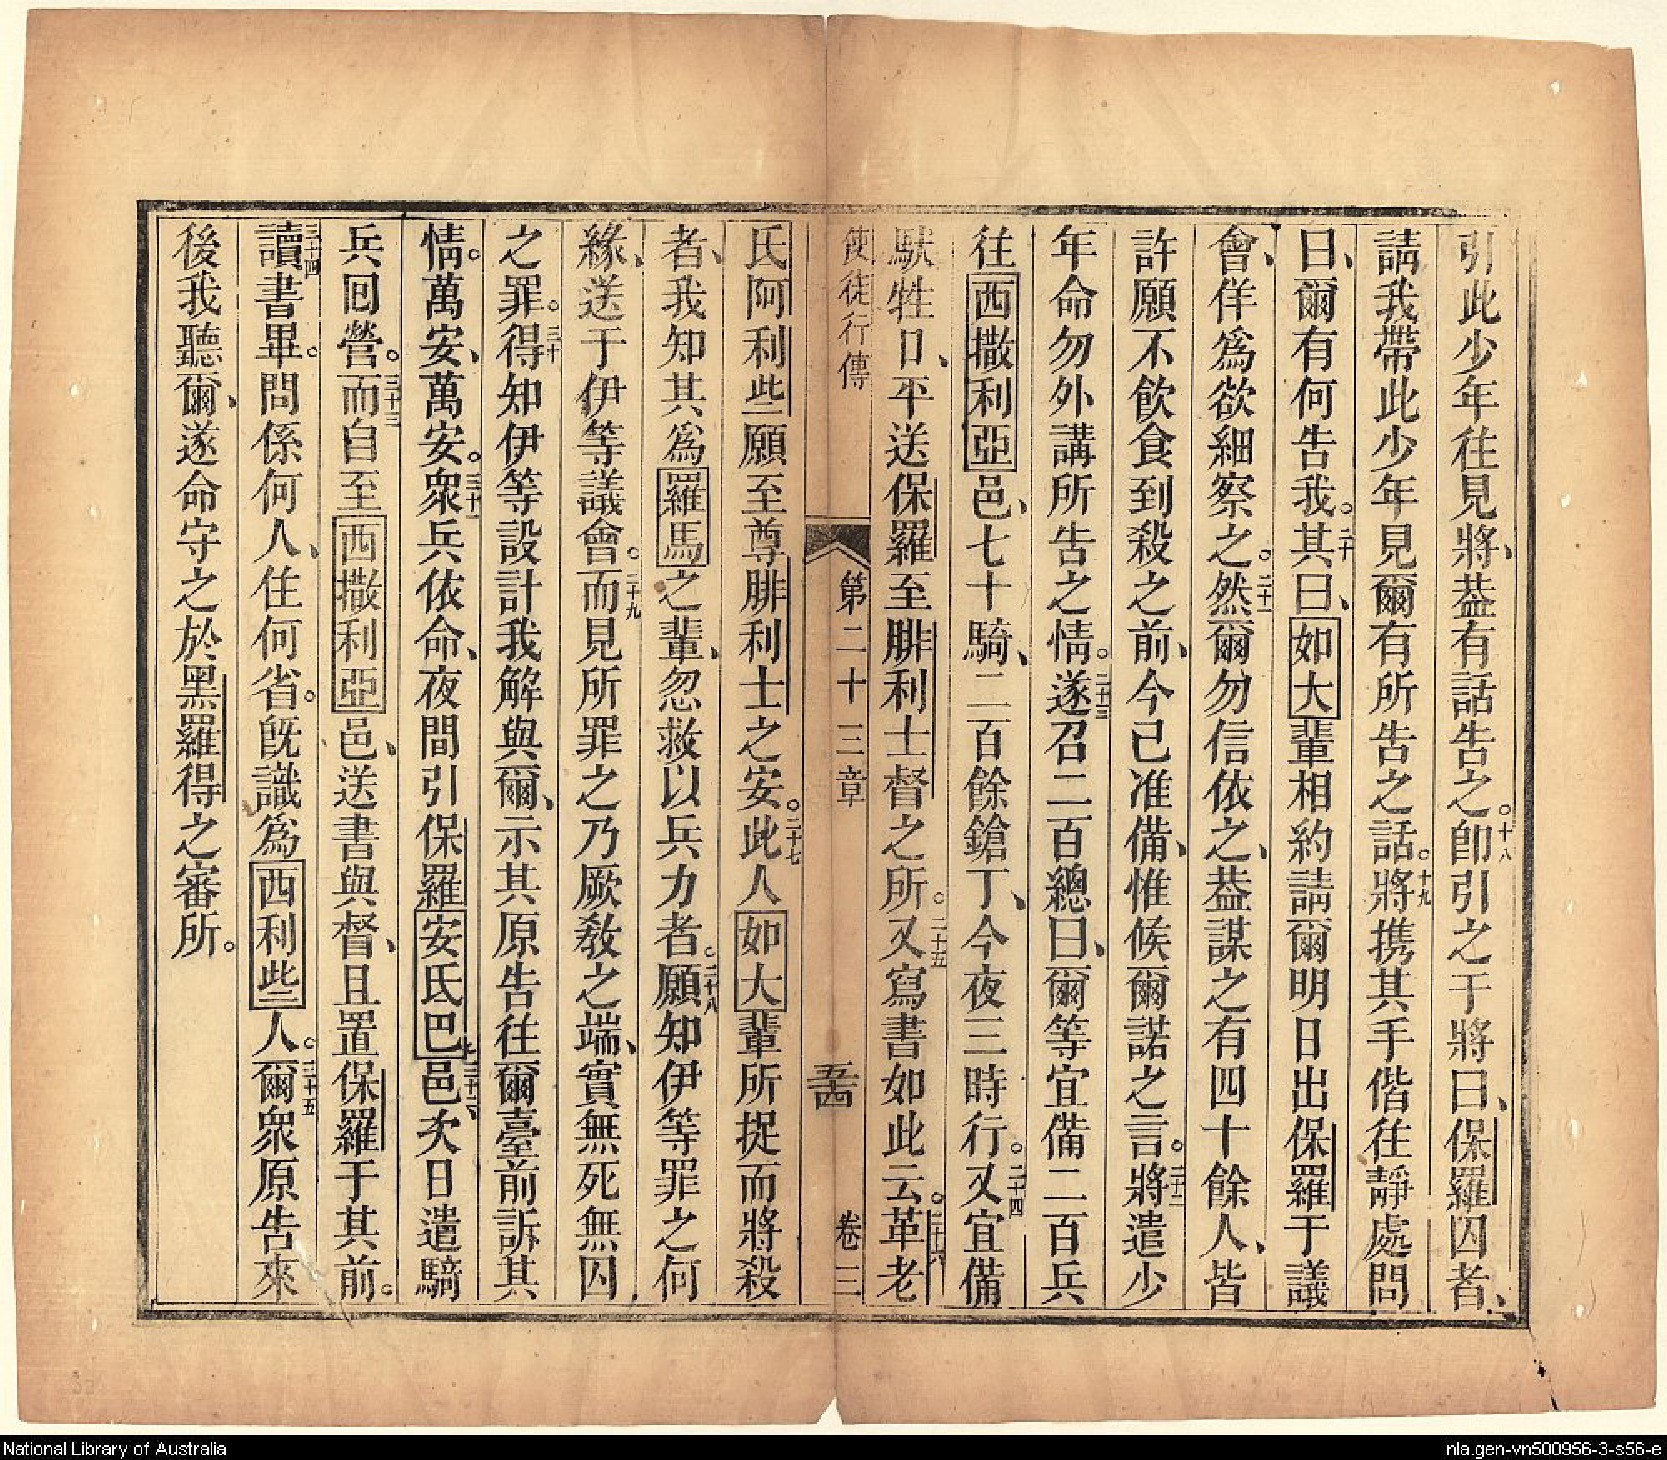 引此少年往見將、葢有話告之。十八卽引之于將曰、保羅囚者、
請我帶此少年見爾有所告之話。十九將携其手偕往靜處問
曰、爾有何告我。二十其曰、如大輩相約請爾明日出保羅于議
會、佯爲欲細察之。二十一然爾勿信依之、葢謀之有四十餘人、皆
許願不飲食到殺之前、今已准備、惟候爾諾之言。二十二將遣少
年命勿外講所告之情。二十三遂召二百總曰、爾等宜備二百兵
往西撒利亞邑、七十騎、二百餘鎗丁、今夜三時行。二十四又宜備
馱牲口、平送保羅至腓利士督之所。二十五又寫書如此云。二十六革老
使徒行傳
第二十三章
五十四
卷三
氏阿利些願至尊腓利士之安。二十七此人如大輩所捉而將殺
者、我知其爲羅馬之輩、忽救以兵力者。二十八願知伊等罪之何
緣、送于伊等議會。二十九而見所罪之乃厥敎之端、實無死無囚
之罪。三十得知伊等設計我解與爾、示其原告往爾臺前訴其
情。萬安、萬安。三十一衆兵依命、夜間引保羅安氏巴七邑三十二次日遣騎
兵回營。三十三而自至西撒利亞邑、送書與督、且置保羅于其前。
三十四讀書畢。問係何人、住何省。旣識爲西利些人。三十五爾衆原告來
後我聽爾、遂命守之於黑羅得之審所。
National Library of Australia
nla.gen-vn500956-3-s56-e